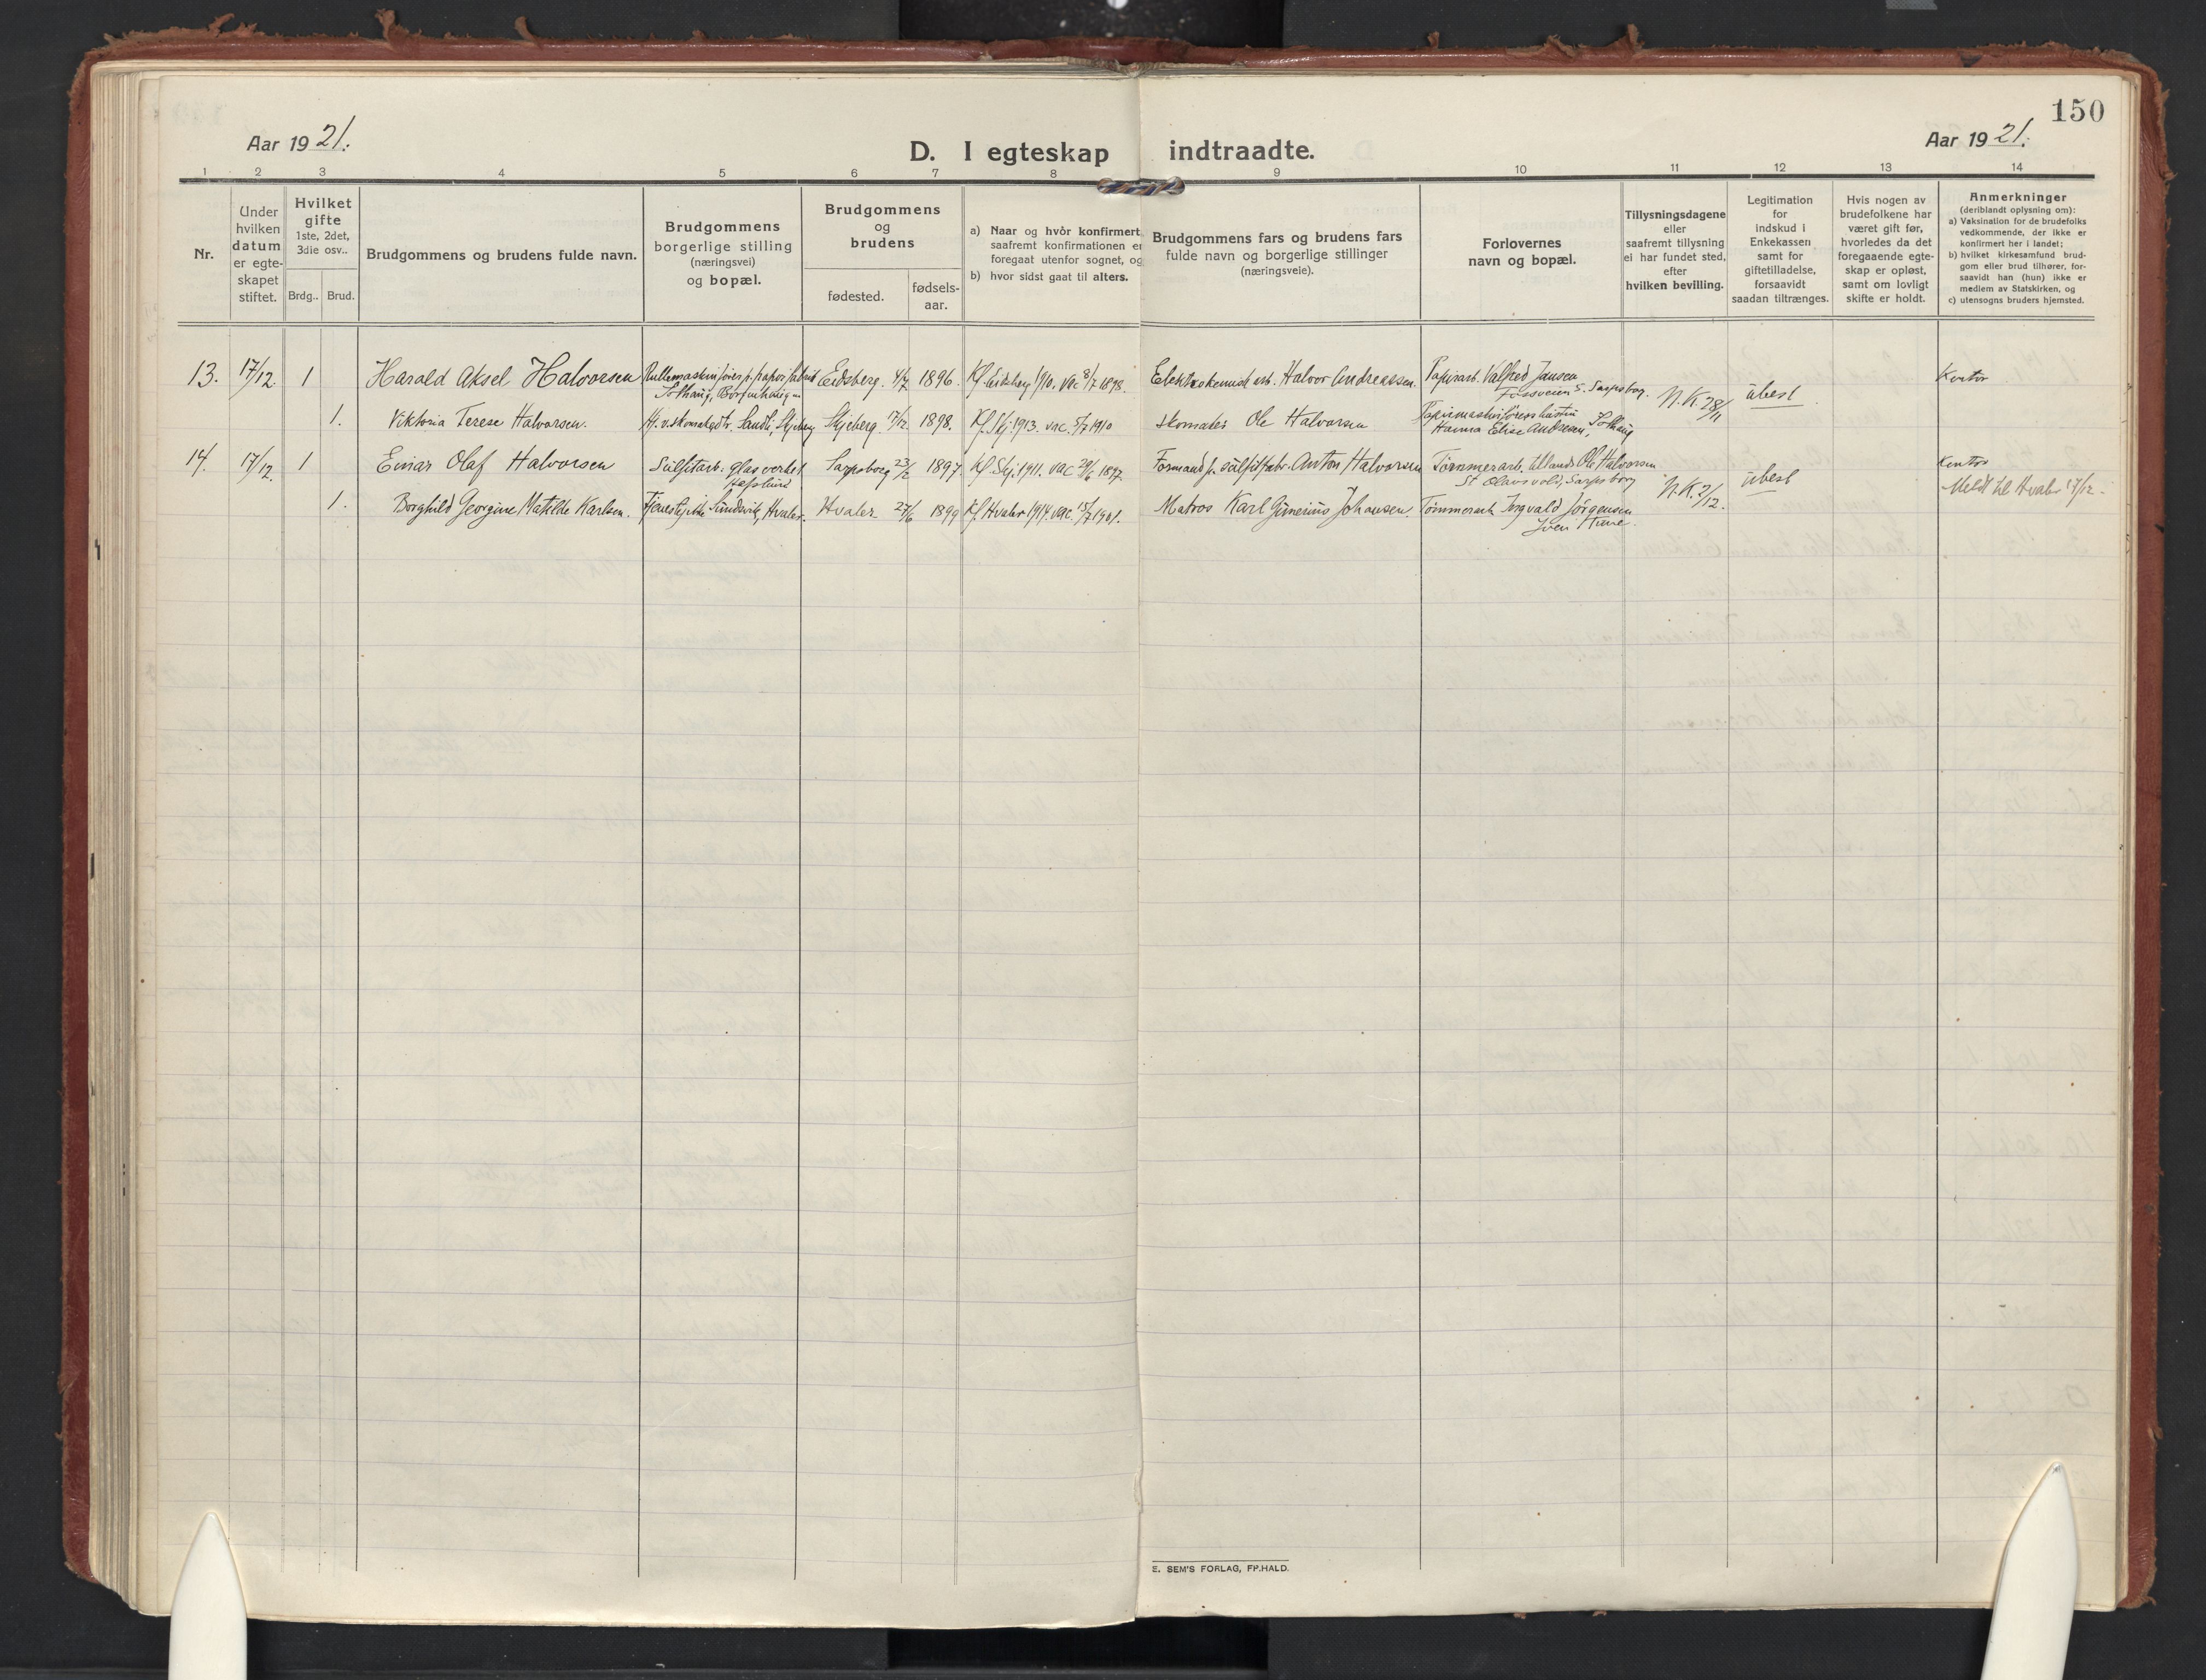 150
Aar 1921.
D. I egteskap indtraadte.
Aar 1921.
1 2 3 4 5 6 7 8 9 10 11 12 13 14
Nr.
Under
hvilken
datum
er egte-
skapet
stiftet.
Hvilket
gifte
1ste, 2det,
3die osv..
Brdg.. Brud.
Brudgommens og brudens fulde navn.
Brudgommens
borgerlige stilling
(næringsvei)
og bopæl.
Brudgommens
og
brudens
fødested.
fødsels-
aar.
a) Naar og hvor konfirmert,
saafremt konfirmationen er
foregaat utenfor sognet, og
b) hvor sidst gaat til alters.
Brudgommens fars og brudens fars
fulde navn og borgerlige stillinger
(næringsveie).
Forlovernes
navn og bopæl.
Tillysningsdagene
eller
saafremt tillysning
ei har fundet sted,
efter
hvilken bevilling.
Legitimation
for
indskud i
Enkekassen
samt for
giftetilladelse,
forsaavidt
saadan tiltrænges.
Hvis nogen av
brudefolkene har
været gift før,
hvorledes da det
foregaaende egte-
skap er opløst,
samt om lovligt
skifte er holdt.
Anmerkninger
(deriblandt oplysning om):
a) Vaksination for de brudefolks
vedkommende, der ikke er
konfirmert her i landet;
b) hvilket kirkesamfund brud-
gom eller brud tilhører, for-
saavidt han (hun) ikke er
medlem av Statskirken, og
c) utensogns bruders hjemsted.
13. 17/12. 1 Harald Aksel Halvorsen Rullemaskinfører p. papirfabrik Eidsberg. 4/7 1896. Kf. Eidsberg 1910. vac 8/7 1898. Elektrokemisk arb. Halvor Andreassen. Papirarb. Valfred Jansen Kontor
Solhaug, Borgenhaugen Fossveien 5. Sarpsborg. N.K. 28/11 ubest
1. Viktoria Terese Halvorsen. Hj. v. skomaked. Sandli, Skjeberg Skjeberg. 17/12 1898. Kf. Skj. 1913. vac. 5/7 1910 Skomaker Ole Halvorsen Papirmaskinførers hustru
Hanna Elise Andresen, Solhaug
14. 17/12. 1 Einar Olaf Halvorsen Sulfitarb. glasverket Sarpsborg 23/2 1897. Kf. Skj. 1911. vac 29/6 1897. Formand p. sulfitfabr. Anton Halvorsen Tømmerarb. tillands Ole Halvorsen Kontor
Hafslund St Olavs vold, Sarpsborg N.K. 2/12. ubest Meldt til Hvaler 17/12.
1. Borghild Georgine Matilde Karlsen. Tjenestepike Sundvik, Hvaler. Hvaler 27/6 1899 Kf. Hvaler 1914. vac. 15/7 1901. Matros Karl Gunerius Johansen. Tømmerarb. Ingvald Jørgensen
Tune.
E. SEM'S FORLAG, FR.HALD.